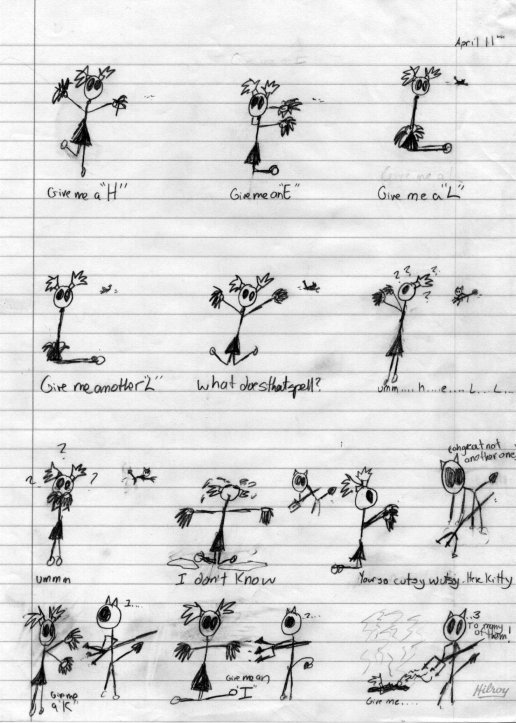 April 11th
Give me a "H"
Give me an "E"
Give me a "L"
Give me another "L"
What does that spell?
? ? ? ?
umm.... h... e.... L... L...
? ? ?
ummm
I don't know
oh great not
another one
Your so cutsy wutsy. Here Kitty
Give me
a "K"
1...
Give me an
"I"
2...
Give me....
...3
To many
of them!
Hilroy